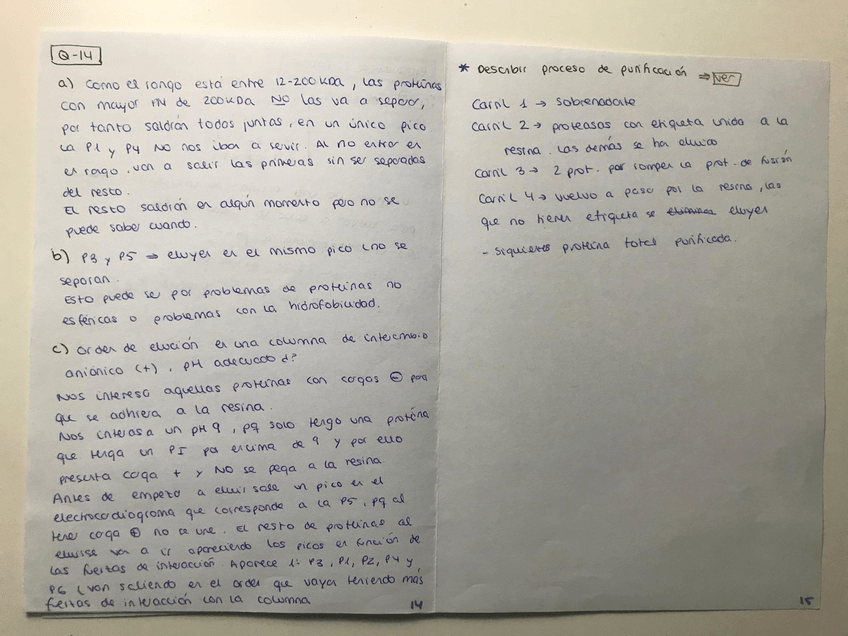 Q-14
a) Como el rango está entre 12-200 KDa, las proteínas
con mayor PM de 200KDa NO las va a separar,
por tanto saldrán todas juntas, en un único pico
la P1 y P4 NO nos iba a servir. Al no entrar en
el rango, van a salir las primeras sin ser separadas
del resto.
El resto saldrán en algún momento pero no se
puede saber cuando.
b) P3 y P5 ⇒ eluyen en el mismo pico (no se
separan.
Esto puede ser por problemas de proteínas no
esféricas o problemas con la hidrofobicidad.
c) Orden de elución en una columna de intercambio
aniónico (+), pH adecuado d?
Nos interesa aquellas proteínas con cargas ⊖ para
que se adhiera a la resina.
Nos interesa un pH 9, pq solo tengo una proteína
que tenga un PI por encima de 9 y por ello
presenta carga + y NO se pega a la resina
Antes de empezar a eluir sale un pico en el
electrocardiograma que corresponde a la P5, pq al
tener carga ⊕ no se une. El resto de proteínas al
eluirse van a ir apareciendo los picos en función de
las fuerzas de interacción. Aparece 1º P3, P1, P2, P4 y
P6 (van saliendo en el orden que vayan teniendo más
fuerzas de interacción con la columna
14
* Describir proceso de purificación ⇒ ver
Carril 1 → sobrenadante
Carril 2 → proteasas con etiqueta unida a la
resina. Las demás se han eluido
Carril 3 → 2 prot. por romper la prot. de fusión
Carril 4 → vuelvo a pasar por la resina, las
que no tienen etiqueta se eluyen
- proteína total purificada.
15